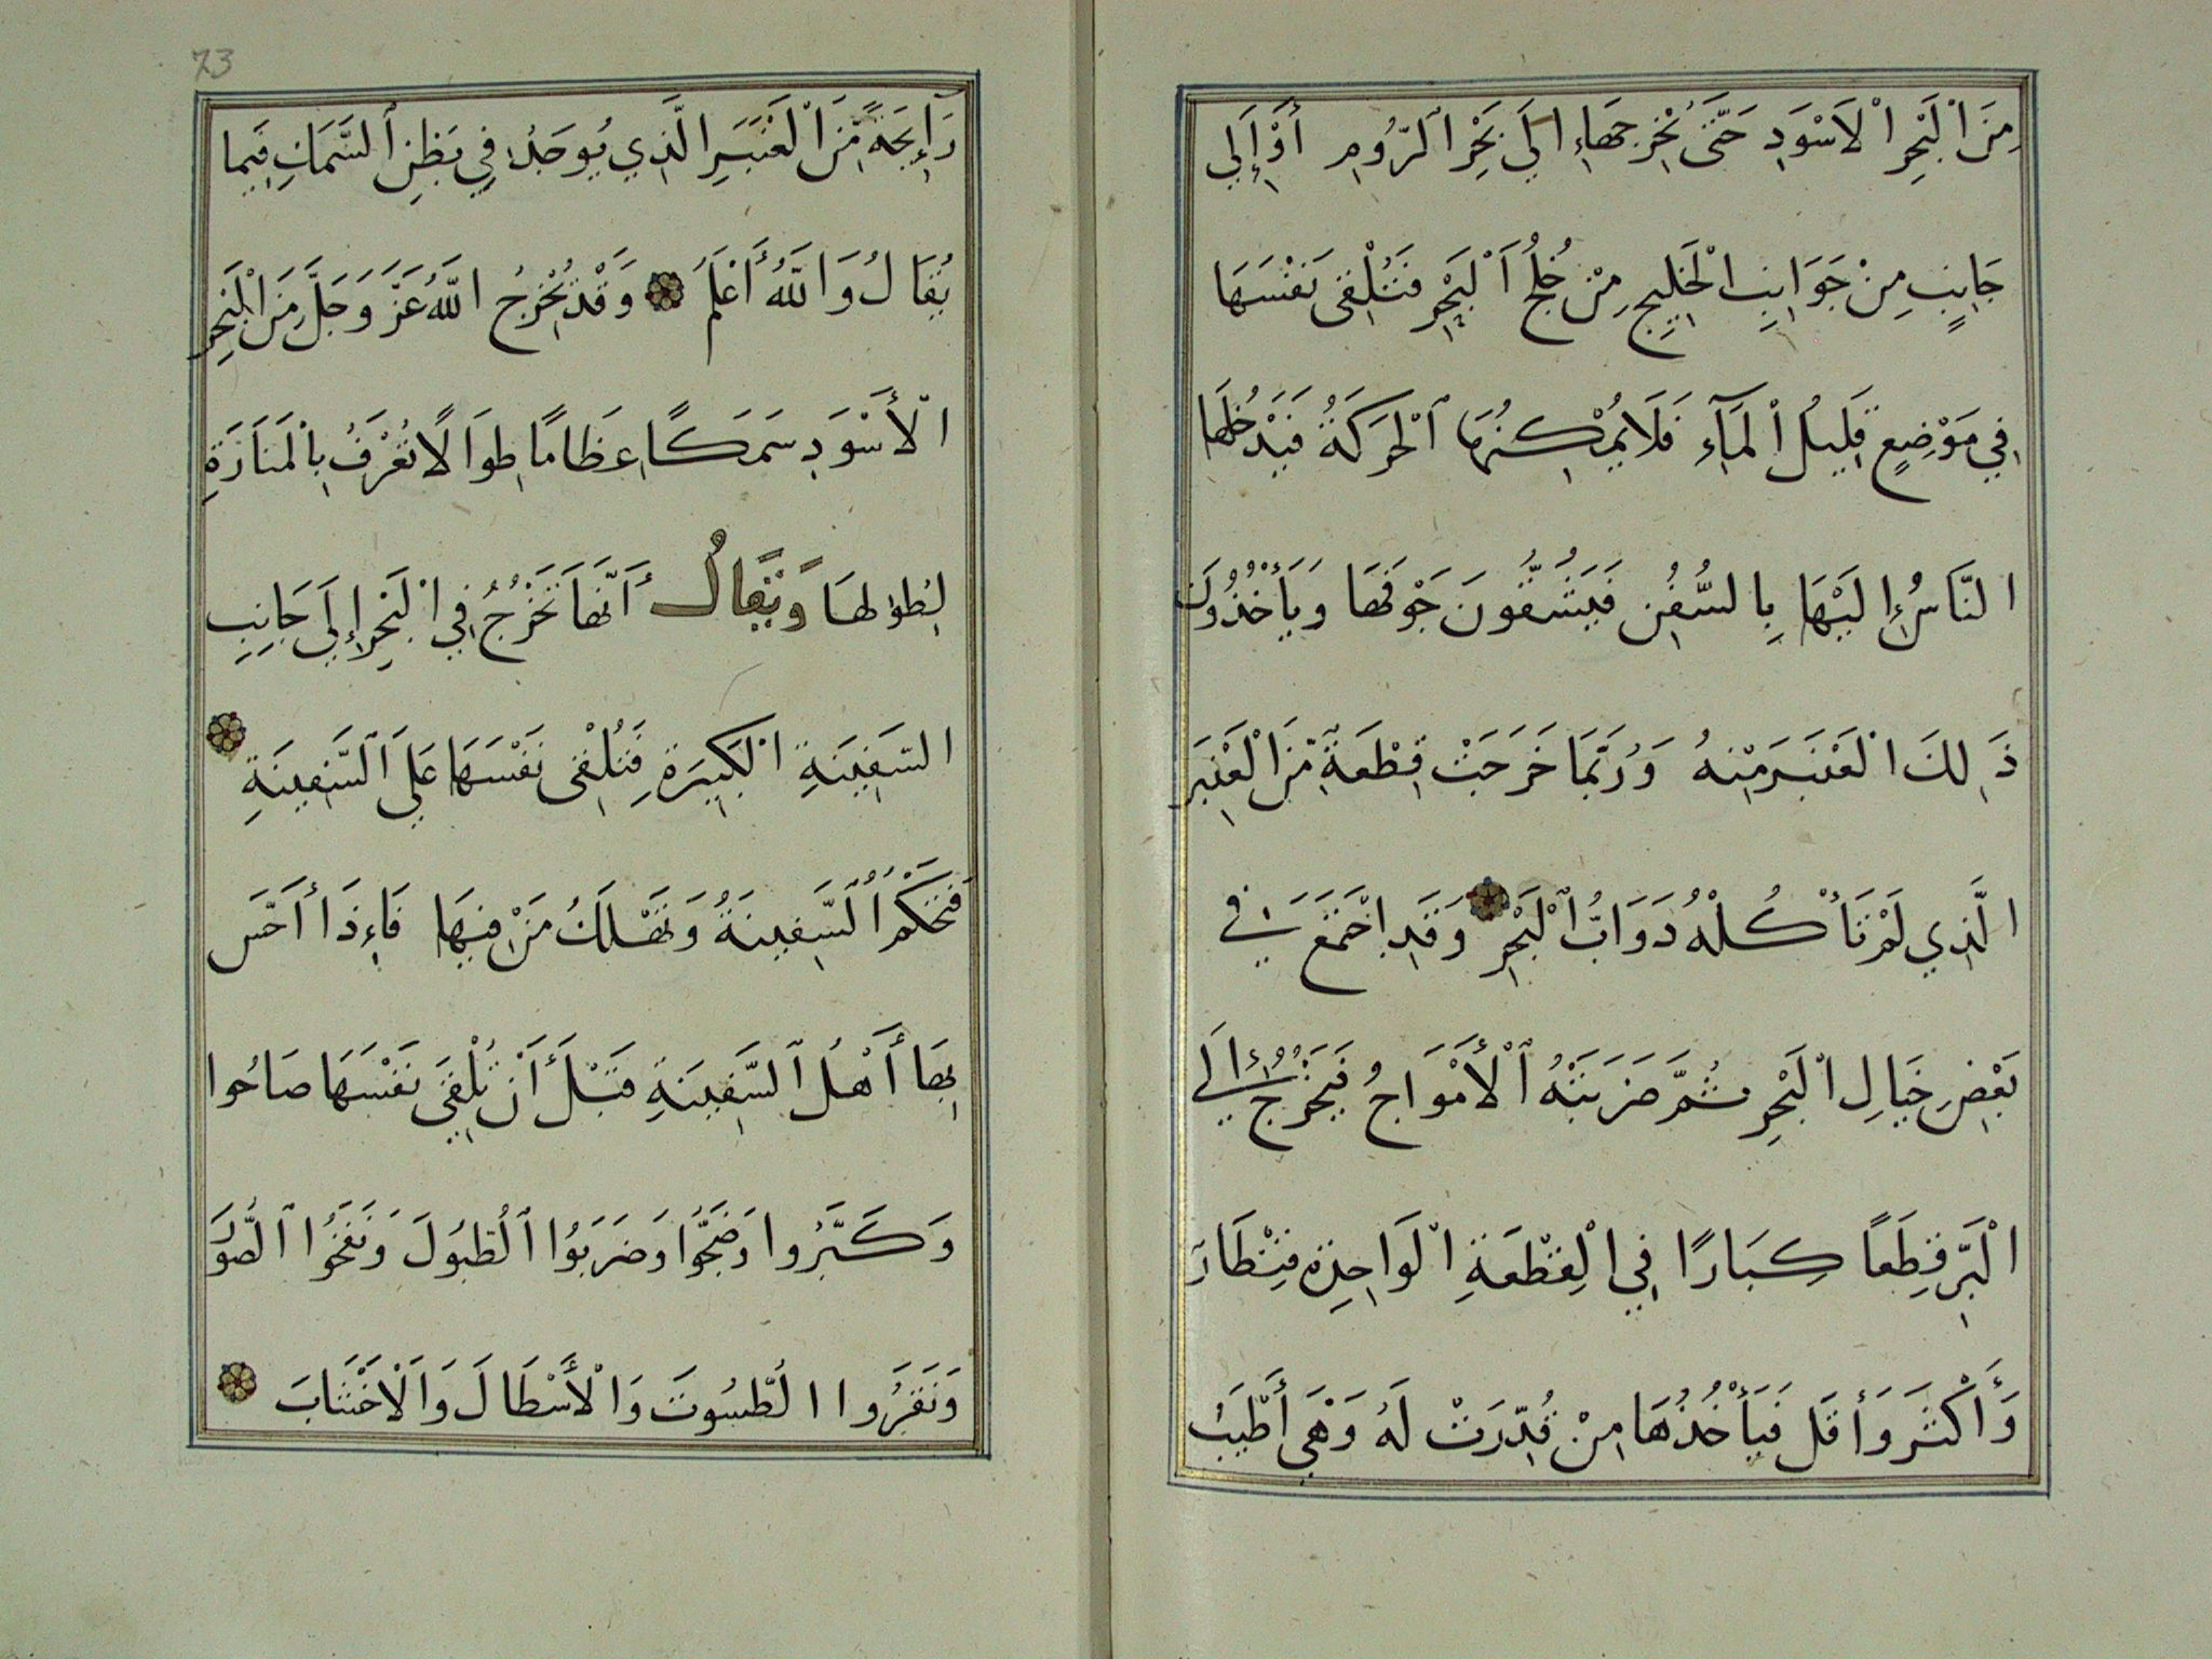 مِنَ الْبَحْرِ الْاَسْوَدِ حَتَّى تُخْرِجهَا إِلَى بَحْرِ الرُّومِ أَوْ إِلَى
جَانِبٍ مِنْ جَوَانِبِ الْخَلِيجِ مِنْ خُلُجُ الْبَحْرِ فَتُلْقِى نَفْسَهَا
فِي مَوْضِعٍ قَلِيلُ الْمَآءِ فَلَا يُمْكِنُهَا الْحَرَكَةُ فَيَدْخُلهَا
النَّاسُ إِلَيْهَا بِالسُّفُنِ فَيَشُقُّونَ جَوْفَهَا وَيَأْخُذُونَ
ذَلِكَ الْعَنْبَرَ مِنْهُ وَرُبَّمَا خَرَجَتْ قِطْعَةً مِنَ الْعَنْبَرِ
الَّذِي لَمْ تَأْكُلْهُ دَوَابُّ الْبَحْرِ وَقَدِ اجْتَمَعَ فِي
بَعْضِ جَبَالِ الْبَحْرِ ثُمَّ ضَرَبَتْهُ الْأَمْوَاجُ فَيَخْرُجُ إِلَى
الْبَرِّ قِطَعًا كِبَارًا فِي الْقِطْعَةِ الْوَاحِدَةِ قِنْطَارَ
وَأَكْثَرَ وَأَقَل فَيَأْخُذُهَا مِنْ قُدِّرَتْ لَهُ وَهَيَ أَطْيَبُ
73
رَإِيحَةً مِنَ الْعَنْبَرِ الَّذِي يُوجَدُ فِي بَطْنِ السَّمَكِ فِيَما
يُقَالُ وَاللَّهُ أَعْلَمُ وَقَدْ يُخْرِجُ اللَّهُ عَزَّ وَجَلَّ مِنَ الْبَحْرِ
الْأَسْوَدِ سَمَكًا عِظَامًا طِوَالًا تُعْرَفُ بِالْمَنَارَةِ
لِطُولِهَا وَيُقَالُ أَنَّهَا تَخْرُجُ فِي الْبَحْرِ إِلَى جَانِبِ
السَّفِينَةِ الْكَبِيرَةِ فَتُلْقِى نَفْسَهَا عَلَى السَّفِينَةِ
فَتَحْكُمُ السَّفِينَةُ وَتَهْلَكُ مَنْ فِيهَا فَإِذَا أَحَسَّ
بِهَا أَهْلُ السَّفِينَةِ قَبْلَ أَنْ تُلْقِيَ نَفْسَهَا صَاحُوا
وَكَبَّرُوا وَضَجُّوا وَضَرَبُوا الُطبُولَ وَنَفَخُوا الصُّوَرَ
وَنَقَرُوا الطُّسُوتَ وَالْأَسْطَالَ وَالْاَخْشَابَ